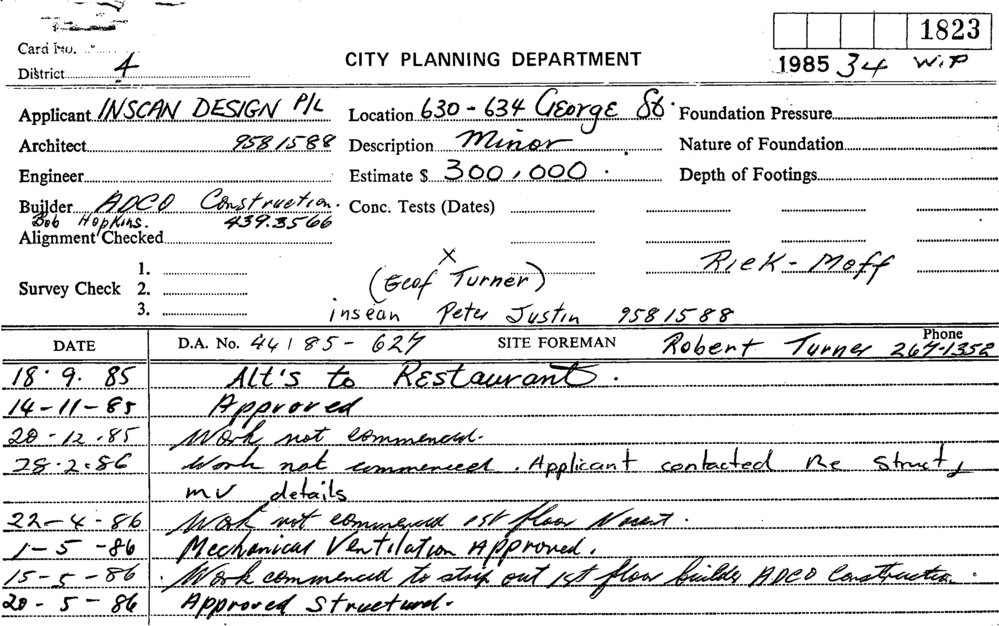 1823
Card No.
District 4
CITY PLANNING DEPARTMENT
1985 34 W.P
Applicant INSCAN DESIGN P/L
Location 630-634 George St.
Foundation Pressure
Architect 9581588
Description Minor
Nature of Foundation
Engineer
Estimate $ 300,000.
Depth of Footings
Builder ADCO Construction.
Conc. Tests (Dates)
Bob Hopkins. 439.3566
Alignment Checked
X
Rick-Moff
1.
(Geof Turner)
Survey Check 2.
3.
inscan Peter Justin 9581588
DATE D.A. No. 44185-627 SITE FOREMAN Robert Turner Phone 267-1352
18.9.85 Alt's to Restaurant.
14-11-85 Approved
20-12.85 Work not commenced.
28.2.86 Work not commenced. Applicant contacted Re Struct,
mv details
22-4-86 Work not commenced 1st floor Vacant.
1-5-86 Mechanical Ventilation Approved.
15-5-86 Work commenced to strip out 1st floor builder ADCO Construction.
20-5-86 Approved Structural.